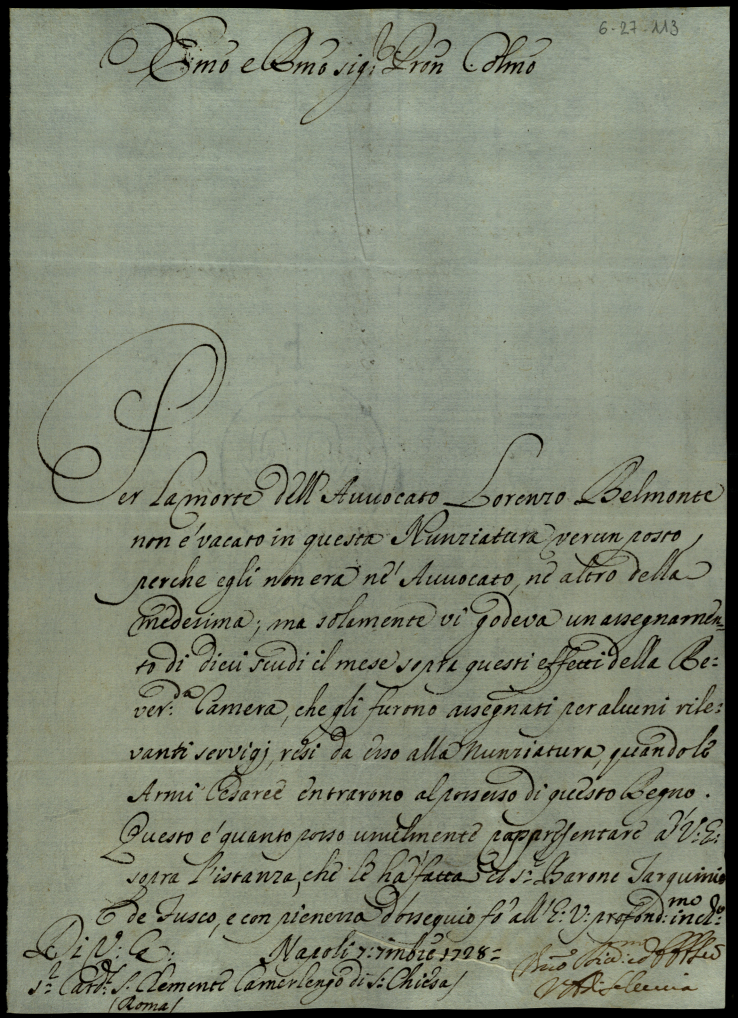 6-27-113
Emo e Rmo sig.r Pron Colmo
Per la morte dell' Avvocato Lorenzo Belmonte
non è vacato in questa Nunziatura verun posto,
perche egli non era nè Avvocato, nè altro della
medesima; ma solamente vi godeva un assegnamen=
to di dieci scudi il mese sopra questi effetti della Re=
ver:da Camera, che gli furono assegnati per alcuni rile=
vanti servigj, resi da esso alla Nunziatura, quando le
Armi Cesaree entrarono al possesso di questo Regno.
Questo è quanto posso umilmente rappresentare a V: E:
sopra l'istanza, che le hà fatta il s.r Barone Tarquinio
de Fusco, e con pienezza d'ossequio fò all' E: V: profond:mo inch:o
Di V: E:    Napoli 7: 7mbre 1728=
s.r Card.l S. Clemente Camerlengo di S.a Chiesa/
/Roma/